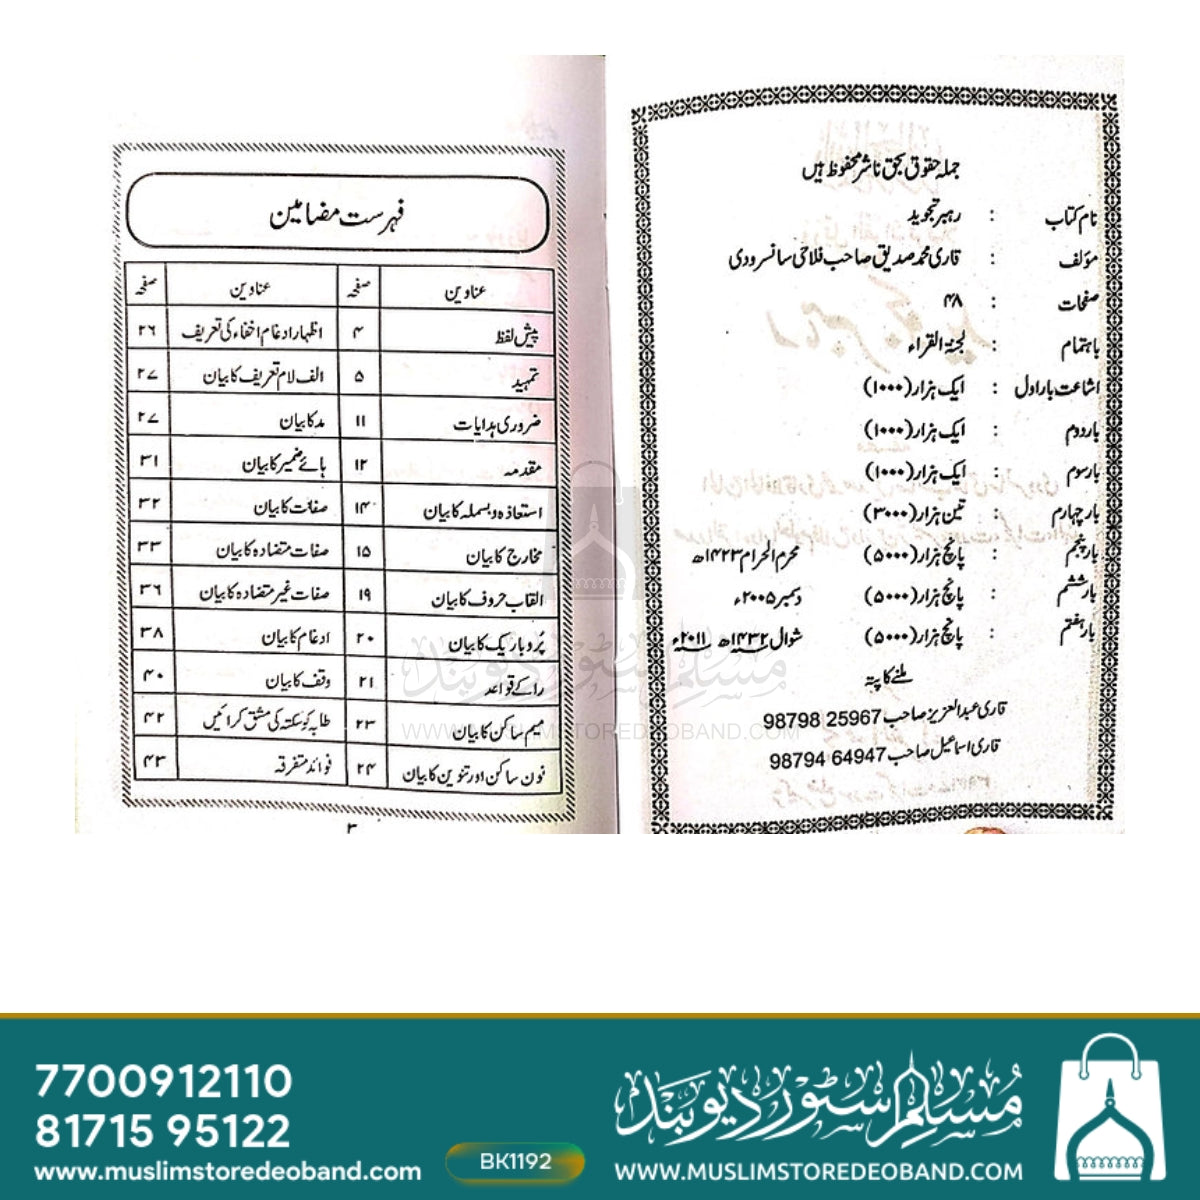 جملہ حقوق بحق ناشر محفوظ ہیں
نام کتاب : رہبر تجوید
مؤلف : قاری محمد صدیق صاحب فلاحی سانسرودی
صفحات : ۴۸
باہتمام : لجنۃ القراء
اشاعت بار اول : ایک ہزار (۱۰۰۰)
بار دوم : ایک ہزار (۱۰۰۰)
بار سوم : ایک ہزار (۱۰۰۰)
بار چہارم : تین ہزار (۳۰۰۰)
بار پنجم : پانچ ہزار (۵۰۰۰) محرم الحرام ۱۴۲۳ھ
بار ششم : پانچ ہزار (۵۰۰۰) دسمبر ۲۰۰۵ء
بار ہفتم : پانچ ہزار (۵۰۰۰) شوال ۱۴۳۲ھ ۲۰۱۱ء
ملنے کا پتہ
قاری عبدالعزیز صاحب 98798 25967
قاری اسماعیل صاحب 98794 64947
فہرست مضامین
عناوین صفحہ عناوین صفحہ
پیش لفظ ۴ اظہار ادغام اخفاء کی تعریف ۲۶
تمہید ۵ الف لام تعریف کا بیان ۲۷
ضروری ہدایات ۱۱ مد کا بیان ۲۷
مقدمہ ۱۲ ہائے ضمیر کا بیان ۳۱
استعاذہ و بسملہ کا بیان ۱۴ صفات کا بیان ۳۲
مخارج کا بیان ۱۵ صفات متضادہ کا بیان ۳۳
القاب حروف کا بیان ۱۹ صفات غیر متضادہ کا بیان ۳۶
پُر و باریک کا بیان ۲۰ ادغام کا بیان ۳۸
را کے قواعد ۲۱ وقف کا بیان ۴۰
میم ساکن کا بیان ۲۳ طلبہ کو سکتہ کی مشق کرائیں ۴۲
نون ساکن اور تنوین کا بیان ۲۴ فوائد متفرقہ ۴۳
۳
مسلم سٹور دیوبند
WWW.MUSLIMSTOREDEOBAND.COM
7700912110
81715 95122
www.muslimstoredeoband.com
BK1192
مسلم سٹور دیوبند
WWW.MUSLIMSTOREDEOBAND.COM